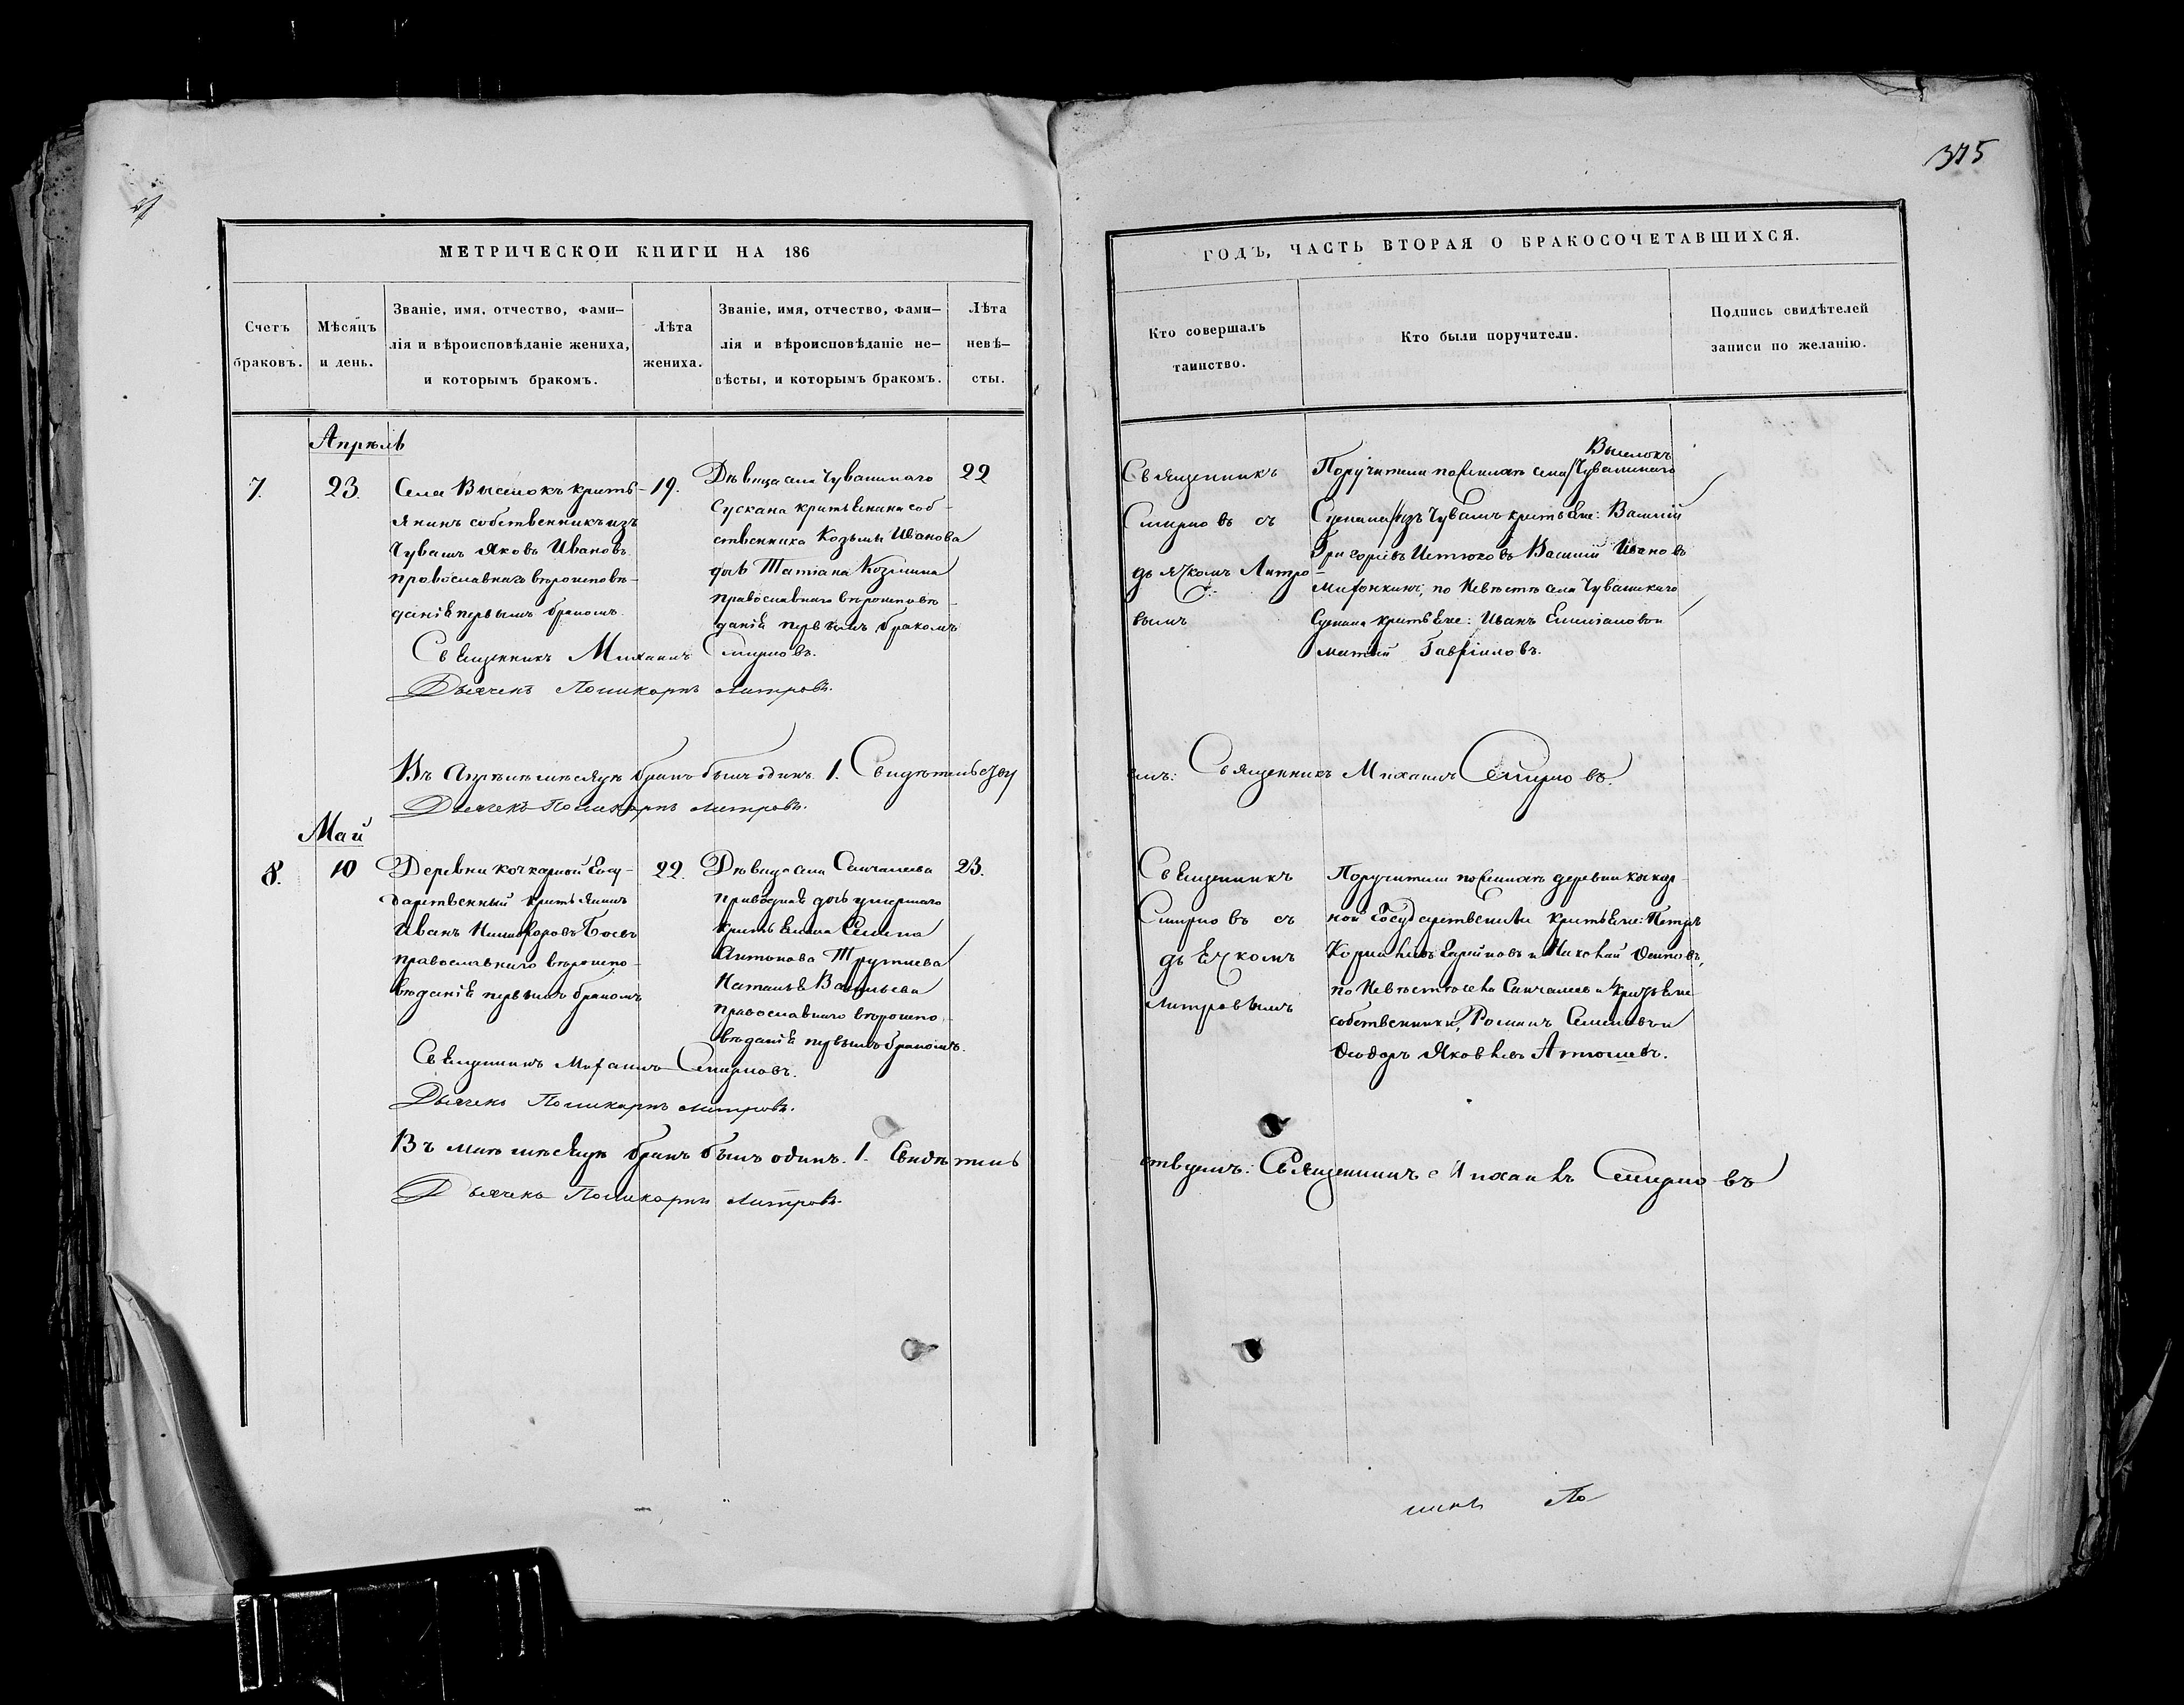 375
МЕТРИЧЕСКОЙ КНИГИ НА 186
Счетъ браковъ.
Мѣсяцъ и день.
Званіе, имя, отчество, фами-
лія и вѣроисповѣданіе жениха,
и которымъ бракомъ.
Лѣта жениха.
Званіе, имя, отчество, фами-
лія и вѣроисповѣданіе не-
вѣсты, и которымъ бракомъ.
Лѣта
невѣ-
сты.
Апрѣль
7.
23.
Села Выселокъ кресть-
янинъ собственникъ изъ
Чувашъ Яковъ Ивановъ
православнаго вѣроисповѣ-
данія первымъ бракомъ.
19.
Дѣвица села Чувашскаго
Сускана крестьянина соб-
ственника Козьмы Иванова
дочь Татіана Козмина
православнаго вѣроисповѣ-
данія первымъ бракомъ
22
Священникъ Михаилъ Смирновъ.
Дьячекъ Поликарпъ Митровъ.
Въ Апрѣлѣ мѣсяцѣ бракъ былъ одинъ. 1. Свидѣтельству
Дьячекъ Поликарпъ Митровъ.
Май
8.
10
Деревни Кочкарной Госу-
дарственный крестьянинъ
Иванъ Никифоровъ
православнаго вѣроиспо-
вѣданія первымъ бракомъ
22.
Дѣвица села Санчалеева
приводная дочь умершаго
крестьянина
Антонова
Наталья Васильева
православнаго вѣроиспо-
вѣданія первымъ бракомъ.
23.
Священникъ Михаилъ Смирновъ.
Дьячекъ Поликарпъ Митровъ.
Въ маѣ мѣсяцѣ бракъ былъ одинъ. 1. Свидѣтель
Дьячекъ Поликарпъ Митровъ.
ГОДЪ, ЧАСТЬ ВТОРАЯ О БРАКОСОЧЕТАВШИХСЯ.
Кто совершалъ
таинство.
Кто были поручители.
Подпись свидѣтелей
записи по желанію.
Священникъ
Смирновъ съ
дьячкомъ Митро-
вымъ
Выселокъ
Поручители по женихѣ села Чувашскаго
Сускана изъ Чувашъ крестьяне: Василій
Григорьевъ Василій Ивановъ
по невѣстѣ села Чувашскаго
Сускана крестьяне: Иванъ Емеліановъ и
Матвѣй Гавріиловъ.
емъ: Священникъ Михаилъ Смирновъ.
Священникъ
Смирновъ съ
дьячкомъ
Митровымъ
Поручители по женихѣ деревни Кочкар-
ной Государственные крестьяне: Петръ
и Николай Осиповъ,
по невѣстѣ села Санчалеева крестьяне
собственники, Романъ Семеновъ и
Ѳеодоръ Яковлевъ
ствуемъ: Священникъ Михаилъ Смирновъ